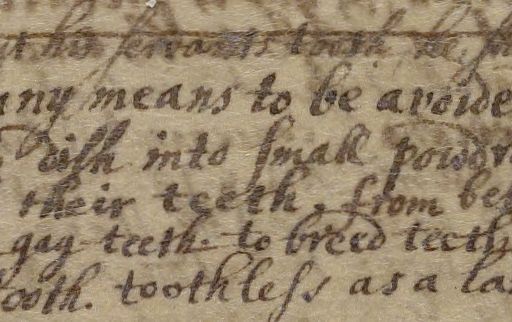 his servants tooth he
any means to be avoide
dish into small powdr
their teeth. from be
gag teeth. to breed teeth
tooth. toothless as a la